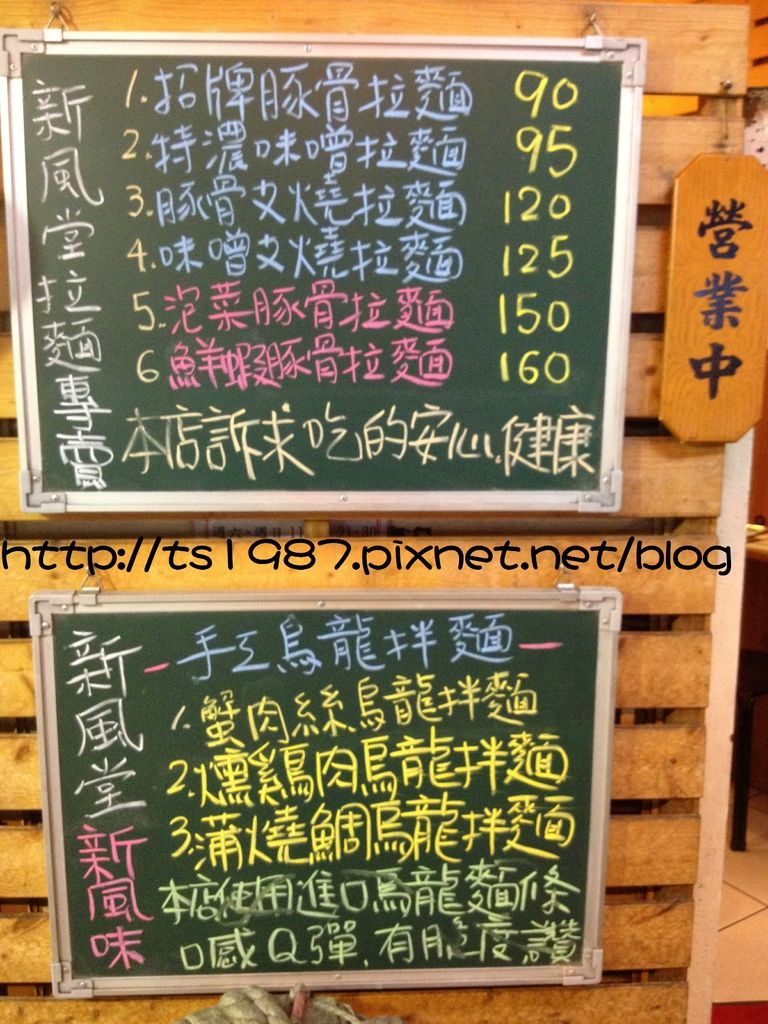 新風堂拉麵專賣
1.招牌豚骨拉麵 90
2.特濃味噌拉麵 95
3.豚骨叉燒拉麵 120
4.味噌叉燒拉麵 125
5.泡菜豚骨拉麵 150
6 鮮蝦豚骨拉麵 160
本店訴求吃的安心.健康
營業中
http://ts1987.pixnet.net/blog
新風堂新風味
-手工烏龍拌麵-
1.蟹肉絲烏龍拌麵
2.燻雞肉烏龍拌麵
3.蒲燒鯛烏龍拌麵
本店使用進口烏龍麵條
口感Q彈.有度讚